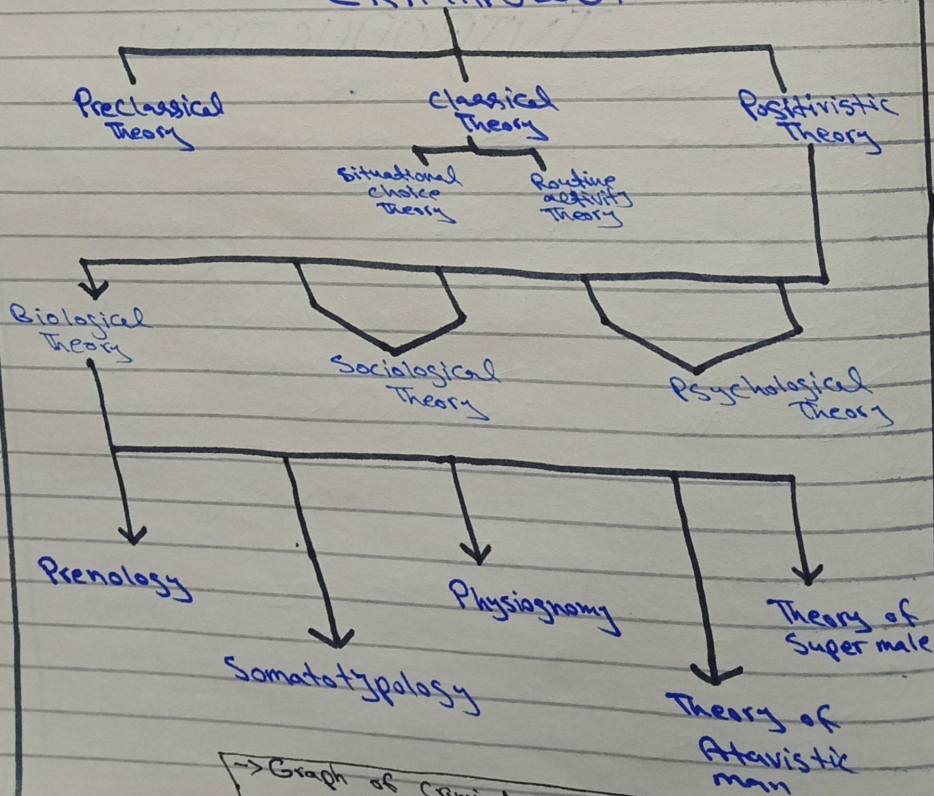 Preclassical
Theory
Classical
Theory
Positivistic
Theory
Situational
choice
Theory
Routine
activity
Theory
Biological
Theory
Sociological
Theory
Psychological
Theory
Prenology
Somatotypology
Physiognomy
Theory of
Atavistic
man
Theory of
Super male
→ Graph of